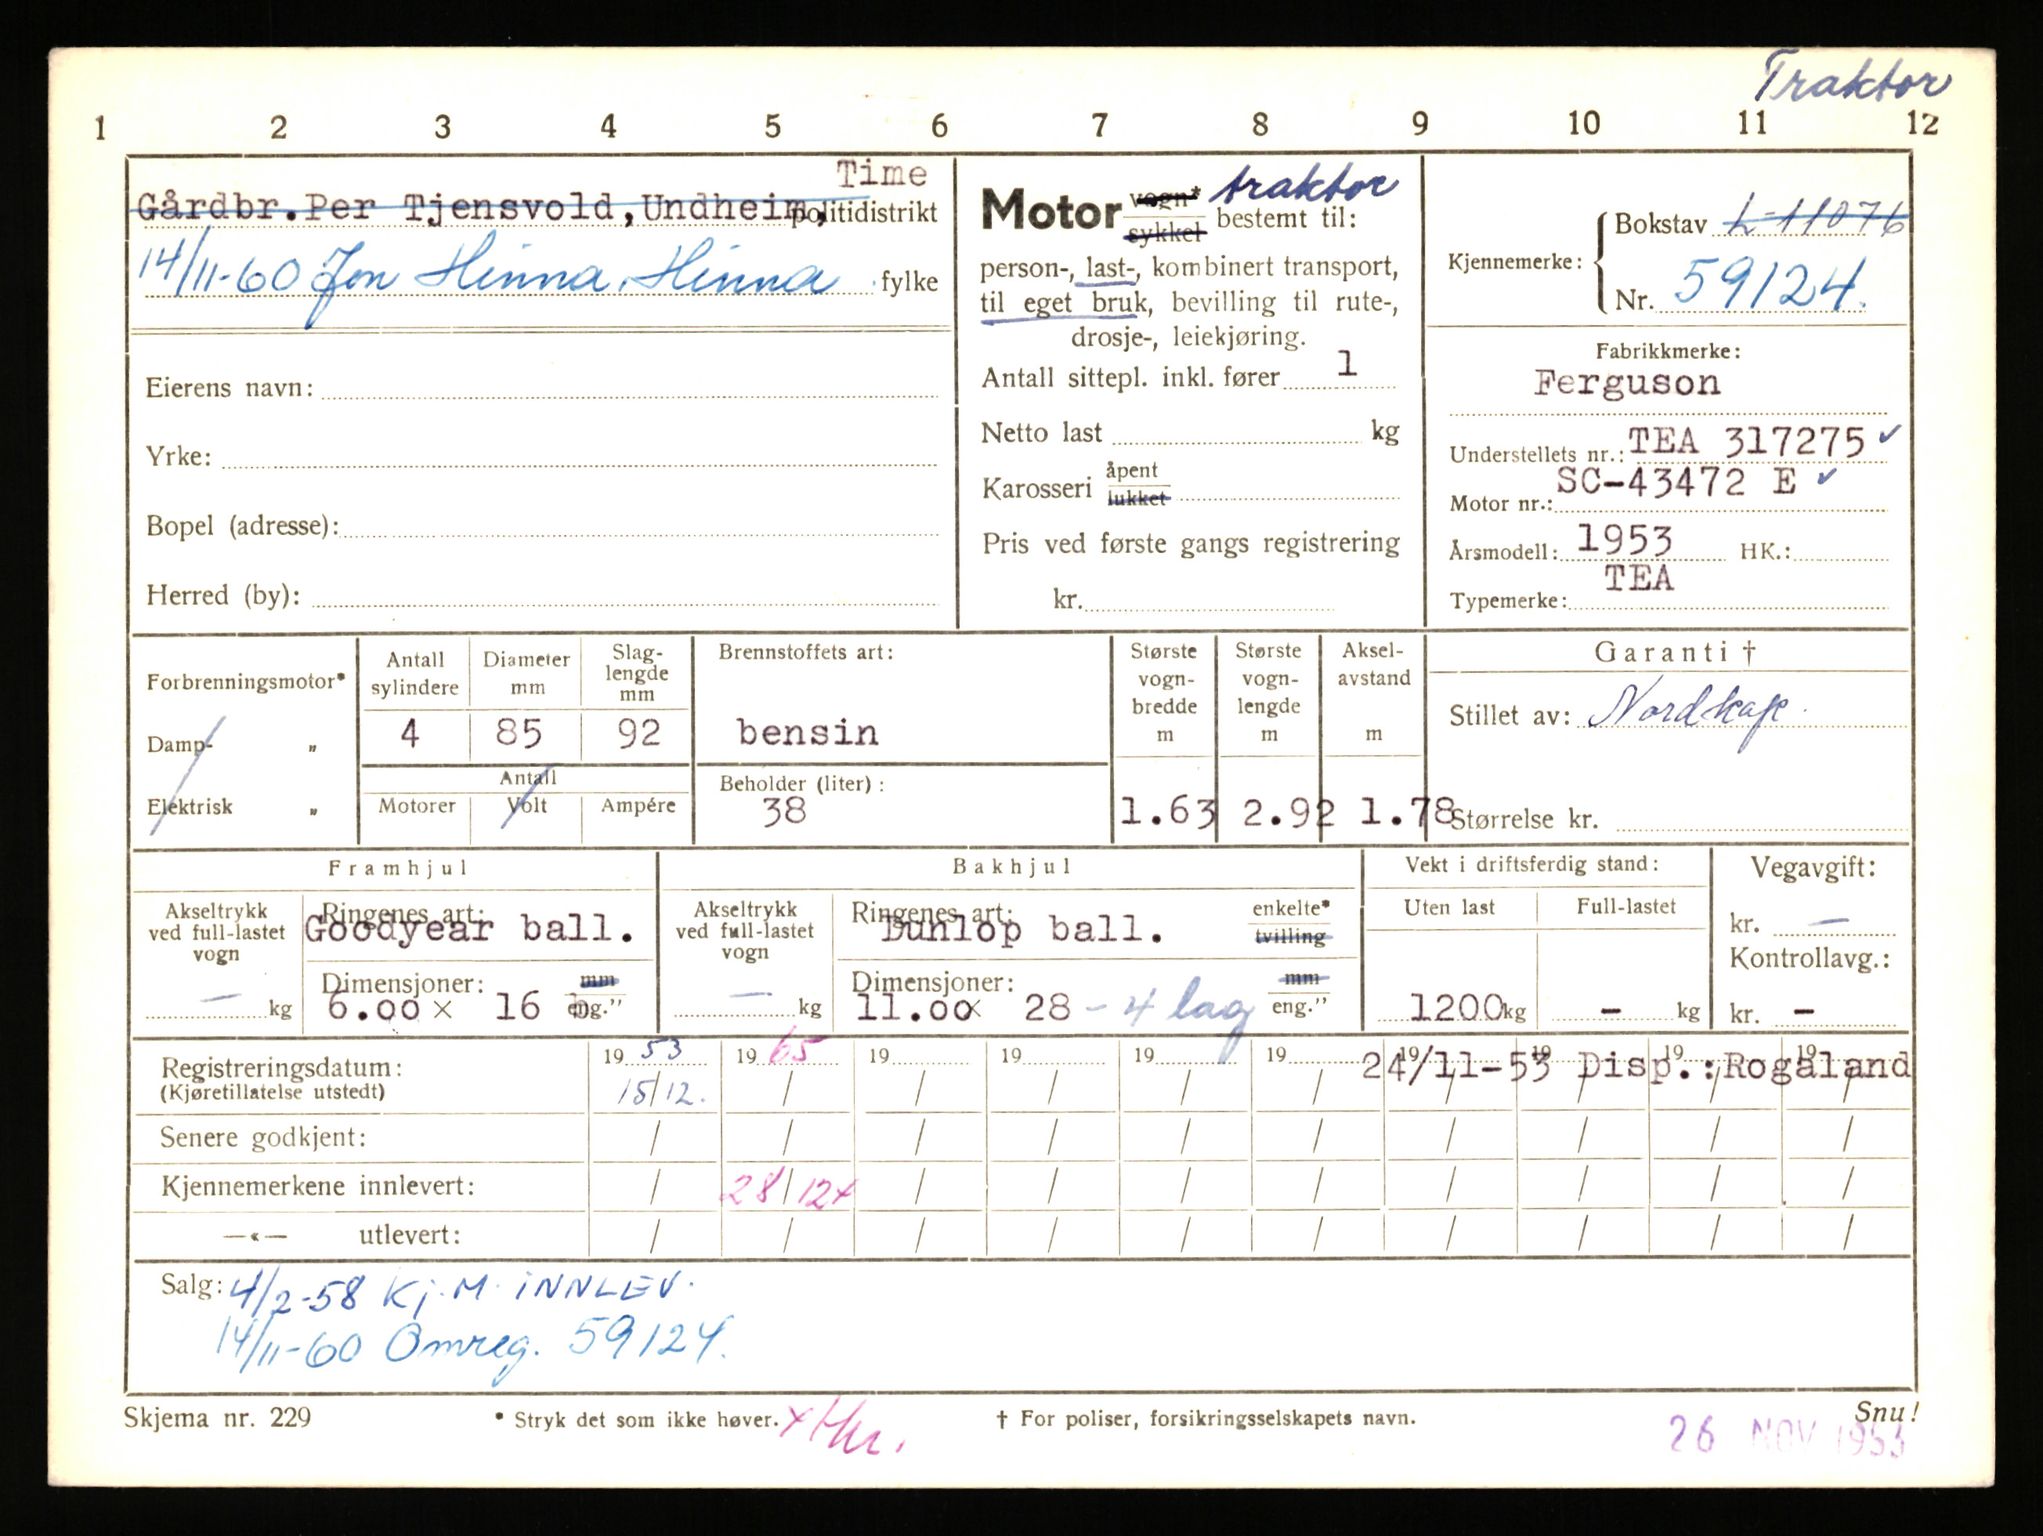 Traktor
1 2 3 4 5 6 7 8 9 10 11 12
Time
Gårdbr. Per Tjensvold, Undheim, politidistrikt
14/11-60 Jon Hinna, Hinna fylke
Eierens navn:
Yrke:
Bopel (adresse):
Herred (by):
Motor vogn* sykkel traktor bestemt til:
person-, last-, kombinert transport,
til eget bruk, bevilling til rute-,
drosje-, leiekjøring.
Antall sittepl. inkl. fører 1
Netto last kg
Karosseri åpent lukket
Pris ved første gangs registrering
kr.
Kjennemerke: Bokstav L-11076
Nr. 59124.
Fabrikkmerke:
Ferguson
Understellets nr.: TEA 317275 ✓
Motor nr.: SC-43472 E ✓
Årsmodell: 1953 HK.:
Typemerke: TEA
Forbrenningsmotor*
Damp- „
Elektrisk „
Antall sylindere
4
Diameter mm
85
Slag-
lengde
mm
92
Antall
Motorer Volt Ampére
Brennstoffets art:
bensin
Beholder (liter):
38
Største
vogn-
bredde
m
1.63
Største
vogn-
lengde
m
2.92
Aksel-
avstand
m
1.78
Garanti †
Stillet av: Nordkap.
Størrelse kr.
Framhjul
Akseltrykk
ved full-lastet
vogn
— kg
Ringenes art:
Goodyear ball.
Dimensjoner: mm
6.00 × 16 eng."
Bakhjul
Akseltrykk
ved full-lastet
vogn
— kg
Ringenes art: enkelte*
Dunlop ball. tvilling
Dimensjoner: mm
11.00 × 28 - 4 lag eng."
Vekt i driftsferdig stand:
Uten last Full-lastet
1200 kg - kg
Vegavgift:
kr. —
Kontrollavg.:
kr. -
Registreringsdatum: 19 53 19 65 19 19 19 19 19 19 19 19
24/11-53 Disp.: Rogaland
(Kjøretillatelse utstedt) 15/12. / / / / / / / / /
Senere godkjent: / / / / / / / / / /
Kjennemerkene innlevert: / 28/12x / / / / / / / /
—«— utlevert: / / / / / / / / / /
Salg: 4/2-58 Kj.M. INNLEV.
14/11-60 Omreg. 59124.
Skjema nr. 229 * Stryk det som ikke høver. † For poliser, forsikringsselskapets navn. Snu!
26 NOV 1953